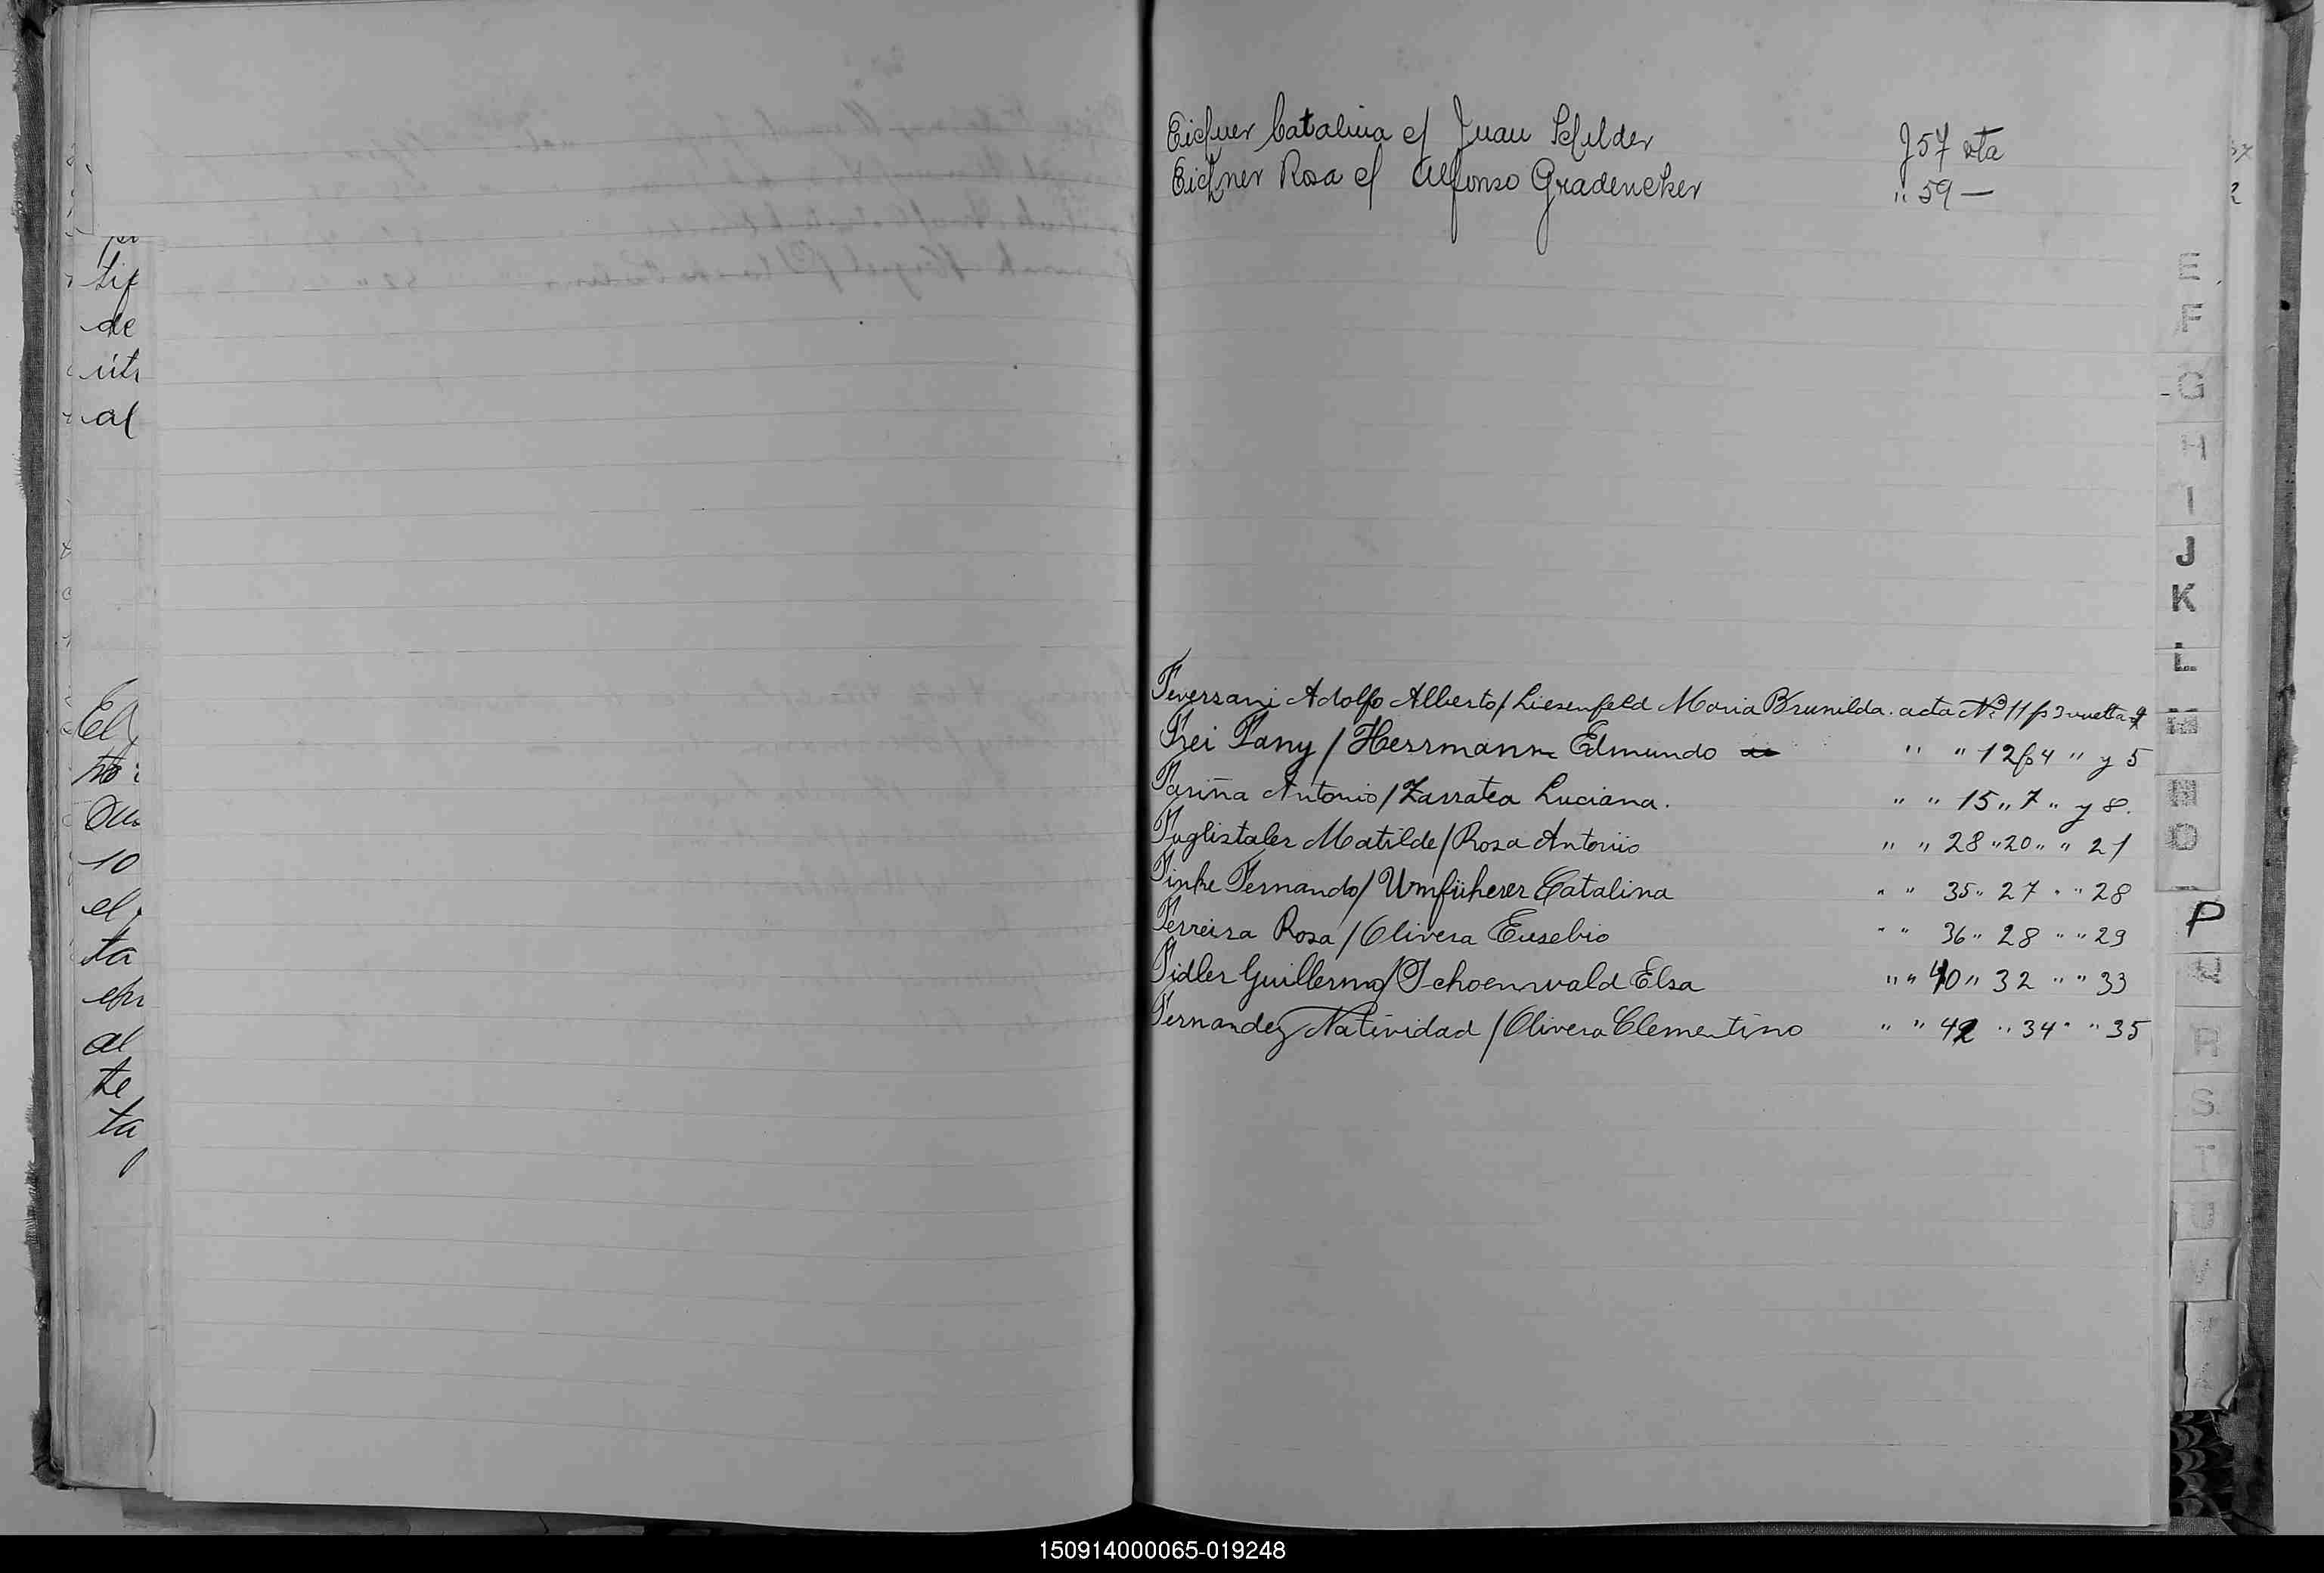 Lif
de
al
El
10
el
ta
al
te
ta
Eichner Catalina c/ Juan Schilder J 57 vta
Eichner Rosa c/ Alfonso Gradenecker " 59 —
E
F
G
H
I
J
K
L
M
N
O
P
R
S
T
U
V
Feversani Adolfo Alberto / Liesenfeld Maria Brunilda. acta Nº 11 f 3 vuelta
Frei Fany / Herrmann Edmundo " " 12 f 4 " y 5
Fariña Antonio / Zarratea Luciana. " " 15 " 7 " y 8.
Fuglistaler Matilde / Rosa Antonio " " 28 " 20 " " 21
Finke Fernando / Umfüherer Catalina " " 35 " 27 " " 28
Ferreira Rosa / Olivera Eusebio " " 36 " 28 " " 29
Fidler Guillermo / Schoenwald Elsa " " 40 " 32 " " 33
Fernandez Natividad / Olivera Clementino " " 42 " 34 " " 35
150914000065-019248